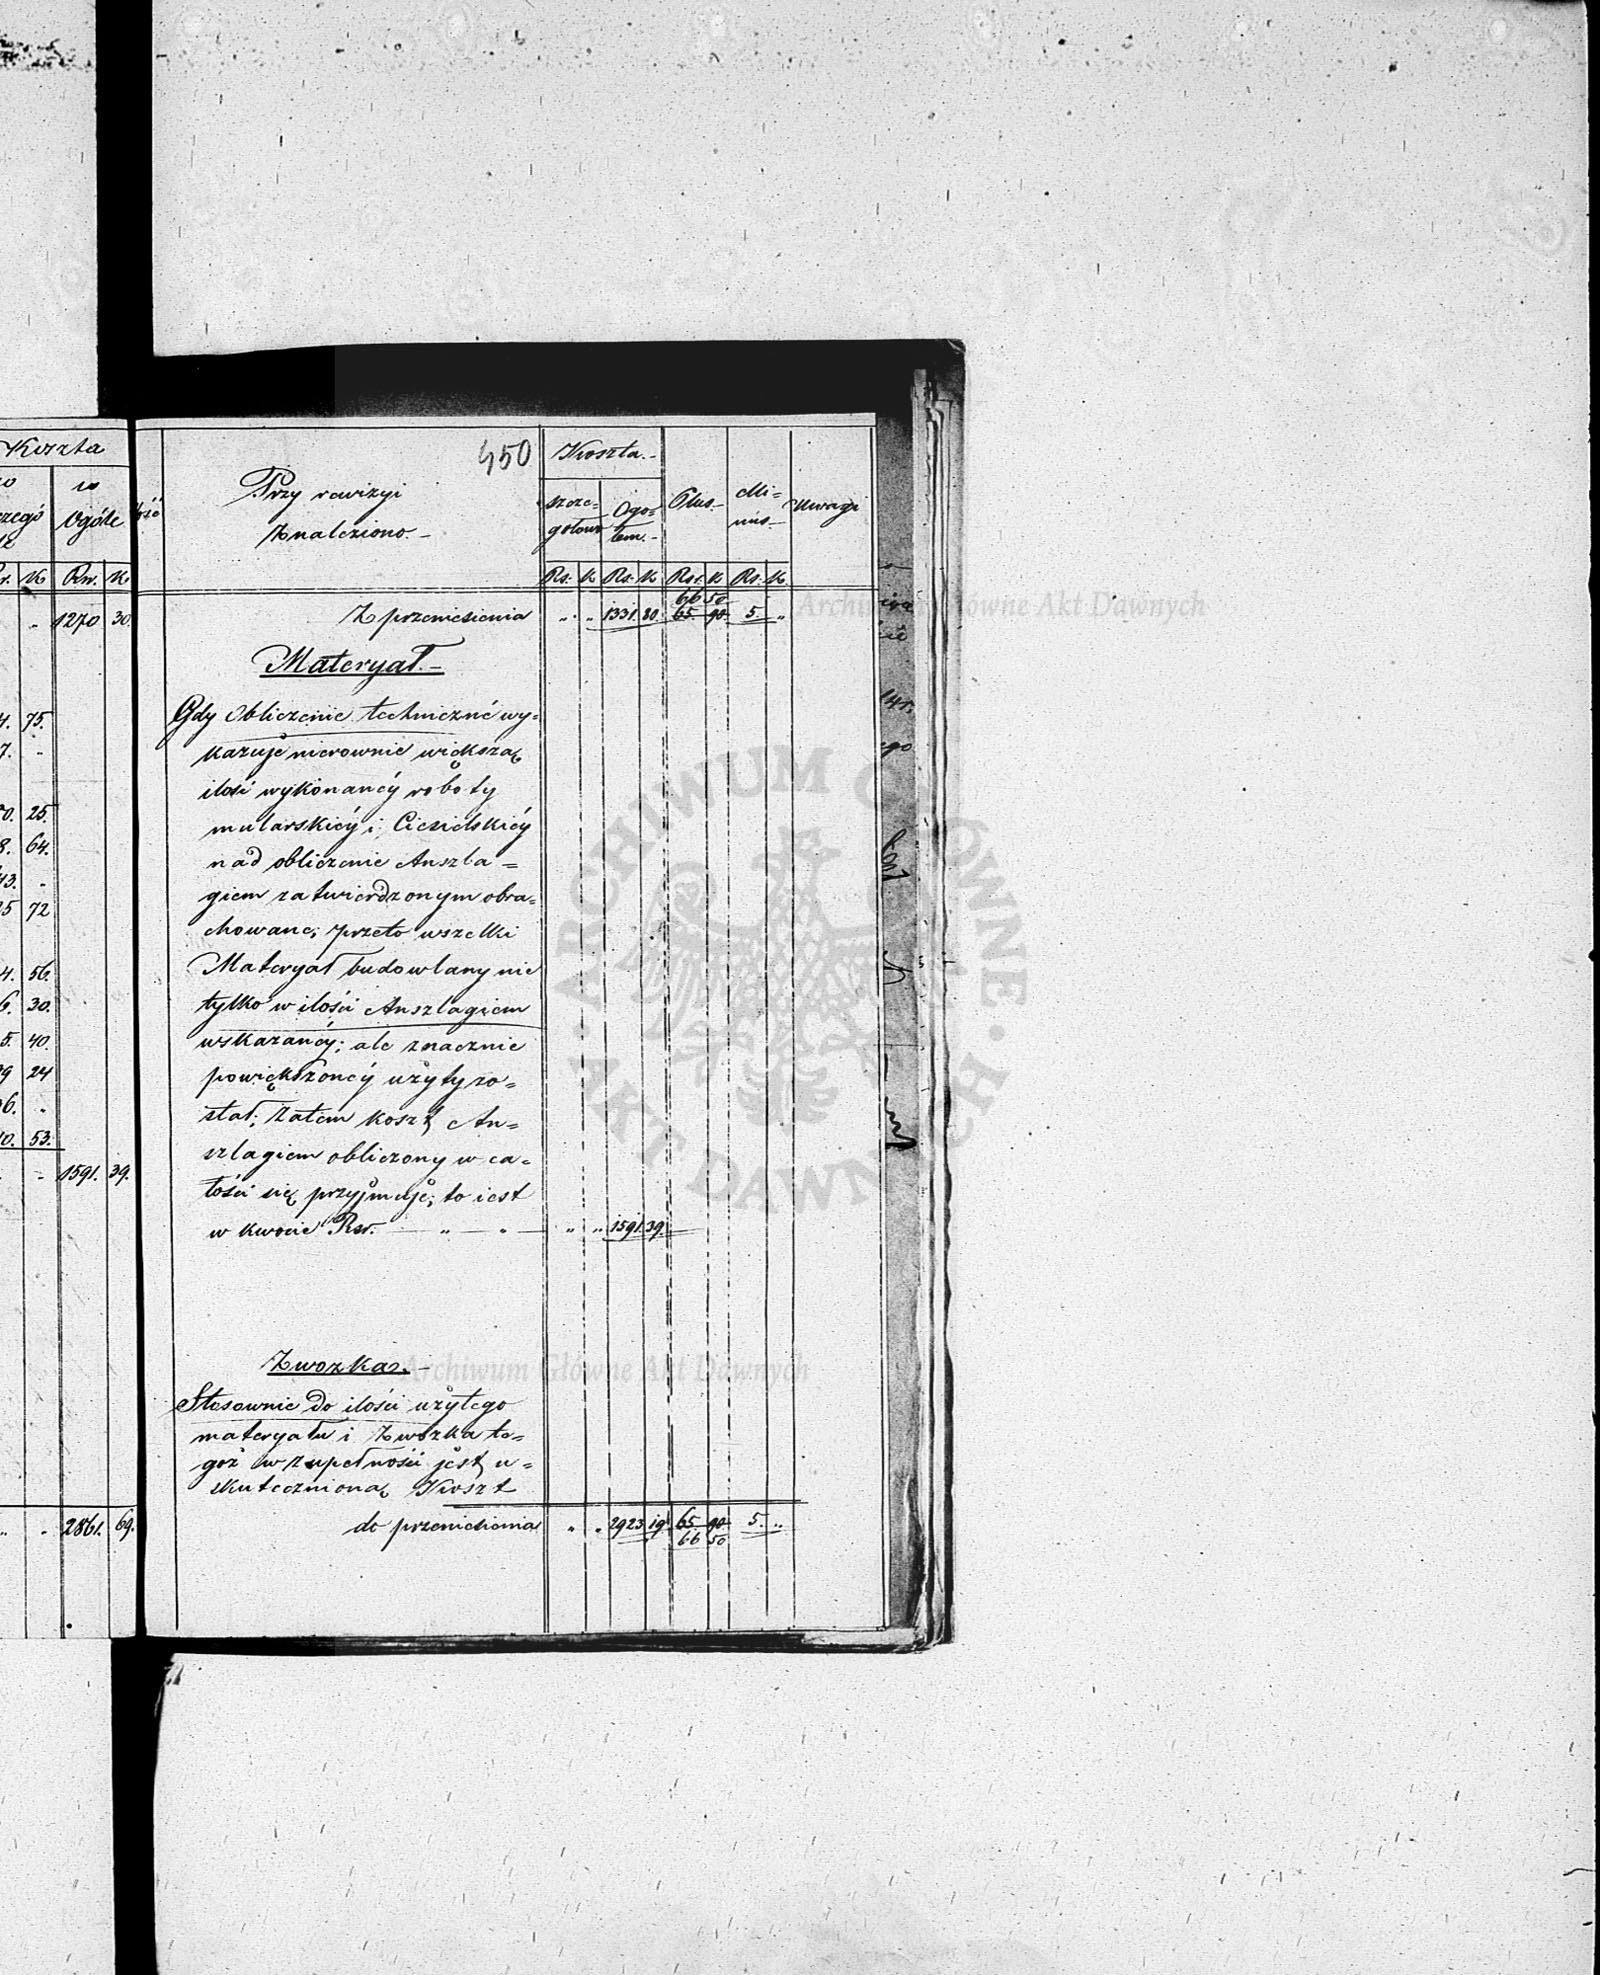 Koszta
w
Ogóle
K Rsr. K
1270 30.
4. 75.
7.
0. 25.
8. 64.
13.
25 72
4. 56.
6. 30.
5. 40.
9 24
6.
0. 53.
1591. 39.
2861. 69.
450
Przy rewizyi
Znaleziono.-
Koszta.-
szcze=
gołowo
Ogo=
łem.-
Plus.-
Mi=
nus.-
Uwagi
Rs. K Rs. K Rsr. K Rs. K
66 50
Z przeniesienia " " 1331. 80. 65. 90. 5. "
Materyał.-
Gdy obliczenie techniczné wy=
kazuje nierownie większą
ilość wykonanéy roboty
mularskiéy i Ciesielskiéy
nad obliczenie Anszla=
giem zatwierdzonym obra=
chowane; przeto wszelki
Materyał budowlany nie
tylko w ilości Anszlagiem
wskazanéy; ale znacznie
powiększonéy użyty zo=
stał; zatem koszt An=
szlagiem obliczony w ca=
łości się przyjmuje; to iest
w kwocie Rsr. " " " " 1591. 39.
Zwozka.-
Stosownie do ilości użytego
materyału i Zwozka te=
goż w zupełności jest u=
skutecznioną Koszt
do przeniesienia " " 2923 19 65 90 5. "
66 50
Archiwum Główne Akt Dawnych
ARCHIWUM GŁÓWNE · AKT DAWNYCH ·
Archiwum Główne Akt Dawnych